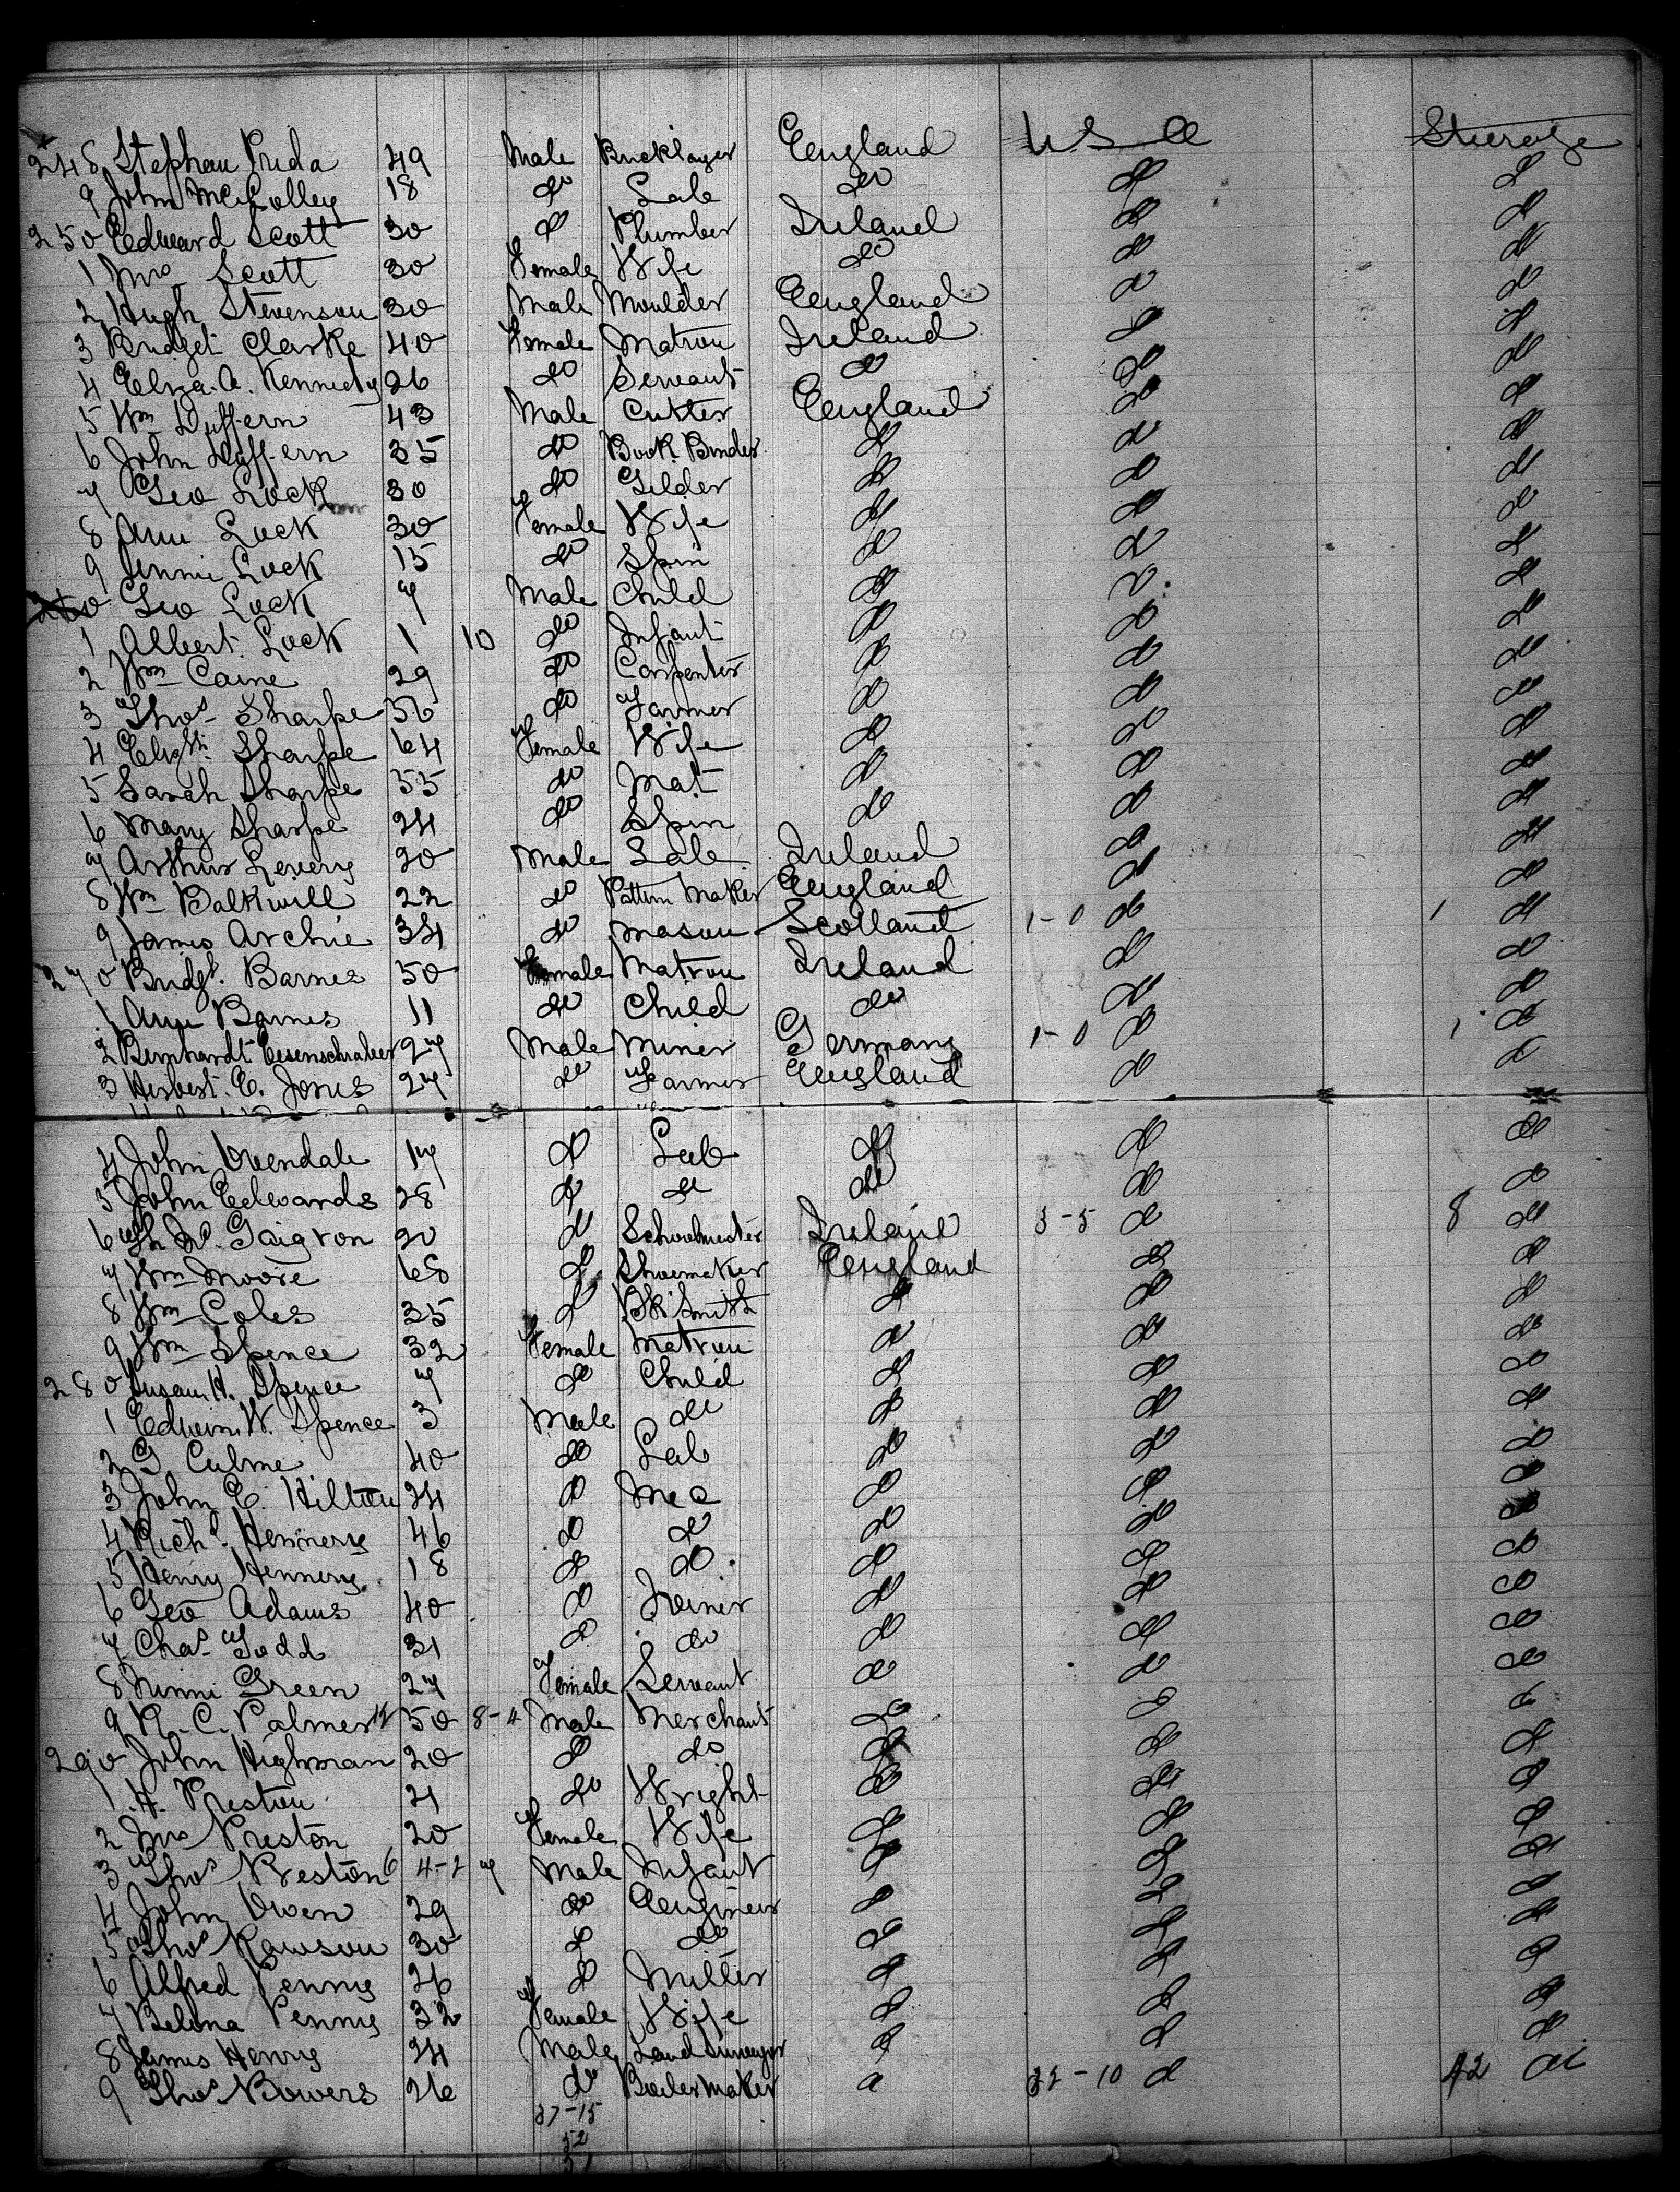 248 Stephan Prida 49 Male Bricklayer England U S A Steerage
9 John McColley 18 do Lab do do do
250 Edward Scott 30 do Plumber Ireland do do
1 Mrs Scott 30 Female Wife do do do
2 Hugh Stevenson 30 Male Moulder England do do
3 Bridget Clarke 40 Female Matron Ireland do do
4 Eliza. A. Kennedy 26 do Servant do do do
5 Wm Duffern 43 Male Cutter England do do
6 John Duffern 35 do Book Binder do do do
7 Geo Lock 30 do Gilder do do do
8 Ann Lock 30 Female Wife do do do
9 Jennie Lock 15 do Spin do do do
260 Geo Lock 7 Male Child do do do
1 Albert Lock 1 10 do Infant do do do
2 Wm Caine 29 do Carpenter do do do
3 Thos Sharpe 56 do Farmer do do do
4 Elizth Sharpe 64 Female Wife do do do
5 Sarah Sharpe 55 do Mat do do do
6 Mary Sharpe 24 do Spin do do do
7 Arthur Levery 20 Male Lab Ireland do do
8 Wm Balkwill 22 do Pattern Maker England do do
9 James Archie 34 do Mason Scotland 1-0 do 1 do
270 Bridgt. Barnes 50 Female Matron Ireland do do
1 Ann Barnes 11 do Child do do do
2 Bernhardt 27 Male Miner Germany 1-0 do 1 do
3 Herbert. E. Jones 27 do Farmer England do do
4 John Ovendale 17 do Lab do do do
5 John Edwards 28 do do do do do
6 20 do Schoolmaster Ireland 3-5 do 8 do
7 Wm Moore 68 do Shoemaker England do do
8 Wm Coles 35 do Bk Smith do do do
9 Wm Spence 32 Female Matron do do do
280 Susan H. Spence 7 do Child do do do
1 Edwin W. Spence 3 Male do do do do
2 G Culme 40 do Lab do do do
3 John E. Hilton 24 do Mec do do do
4 Richd. Hennery 46 do do do do do
5 Henry Hennery 18 do do do do do
6 Geo Adams 40 do Joiner do do do
7 Chas Todd 31 do do do do do
8 Minni Green 27 Female Servant do do do
9 R. C. Palmer 50 8-4 Male Merchant do do do
290 John Highman 20 do do do do do
1 H. Preston 21 do Wright do do do
2 Mrs Preston 20 Female Wife do do do
3 Thos Preston 6 4-2 7 Male Infant do do do
4 John Owen 29 do Engineer do do do
5 Thos Rawson 30 do do do do do
6 Alfred Penny 26 do Miller do do do
7 Belina Penny 32 Female Wife do do do
8 James Henry 24 Male Land Surveyor do do do
9 Thos Bowers 26 do Boilermaker do 32-10 do 42 do
37-15
52